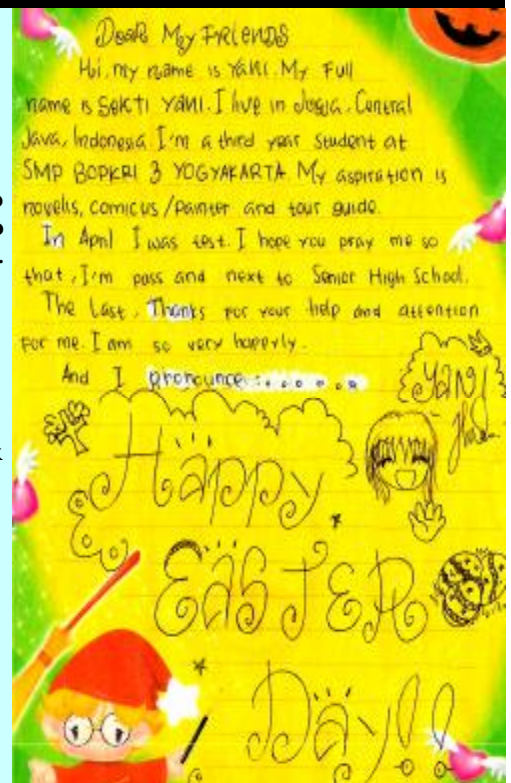 Dear My FRIENDS
Hai, my name is YANI. My Full
name is SEKTI YANI. I live in Jogja, Central
Java, Indonesia. I'm a third year student at
SMP BOPKRI 3 YOGYAKARTA. My aspiration is
novelis, comicus/painter and tour guide.
In April I was test. I hope you pray me so
that, I'm pass and next to Senior High School.
The Last, Thanks for your help and attention
for me. I am so very happerly.
And I pronounce:
YANI
Happy
EASTER
Day!!